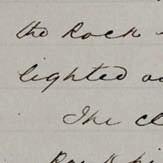 the Rock
lighted
The cl